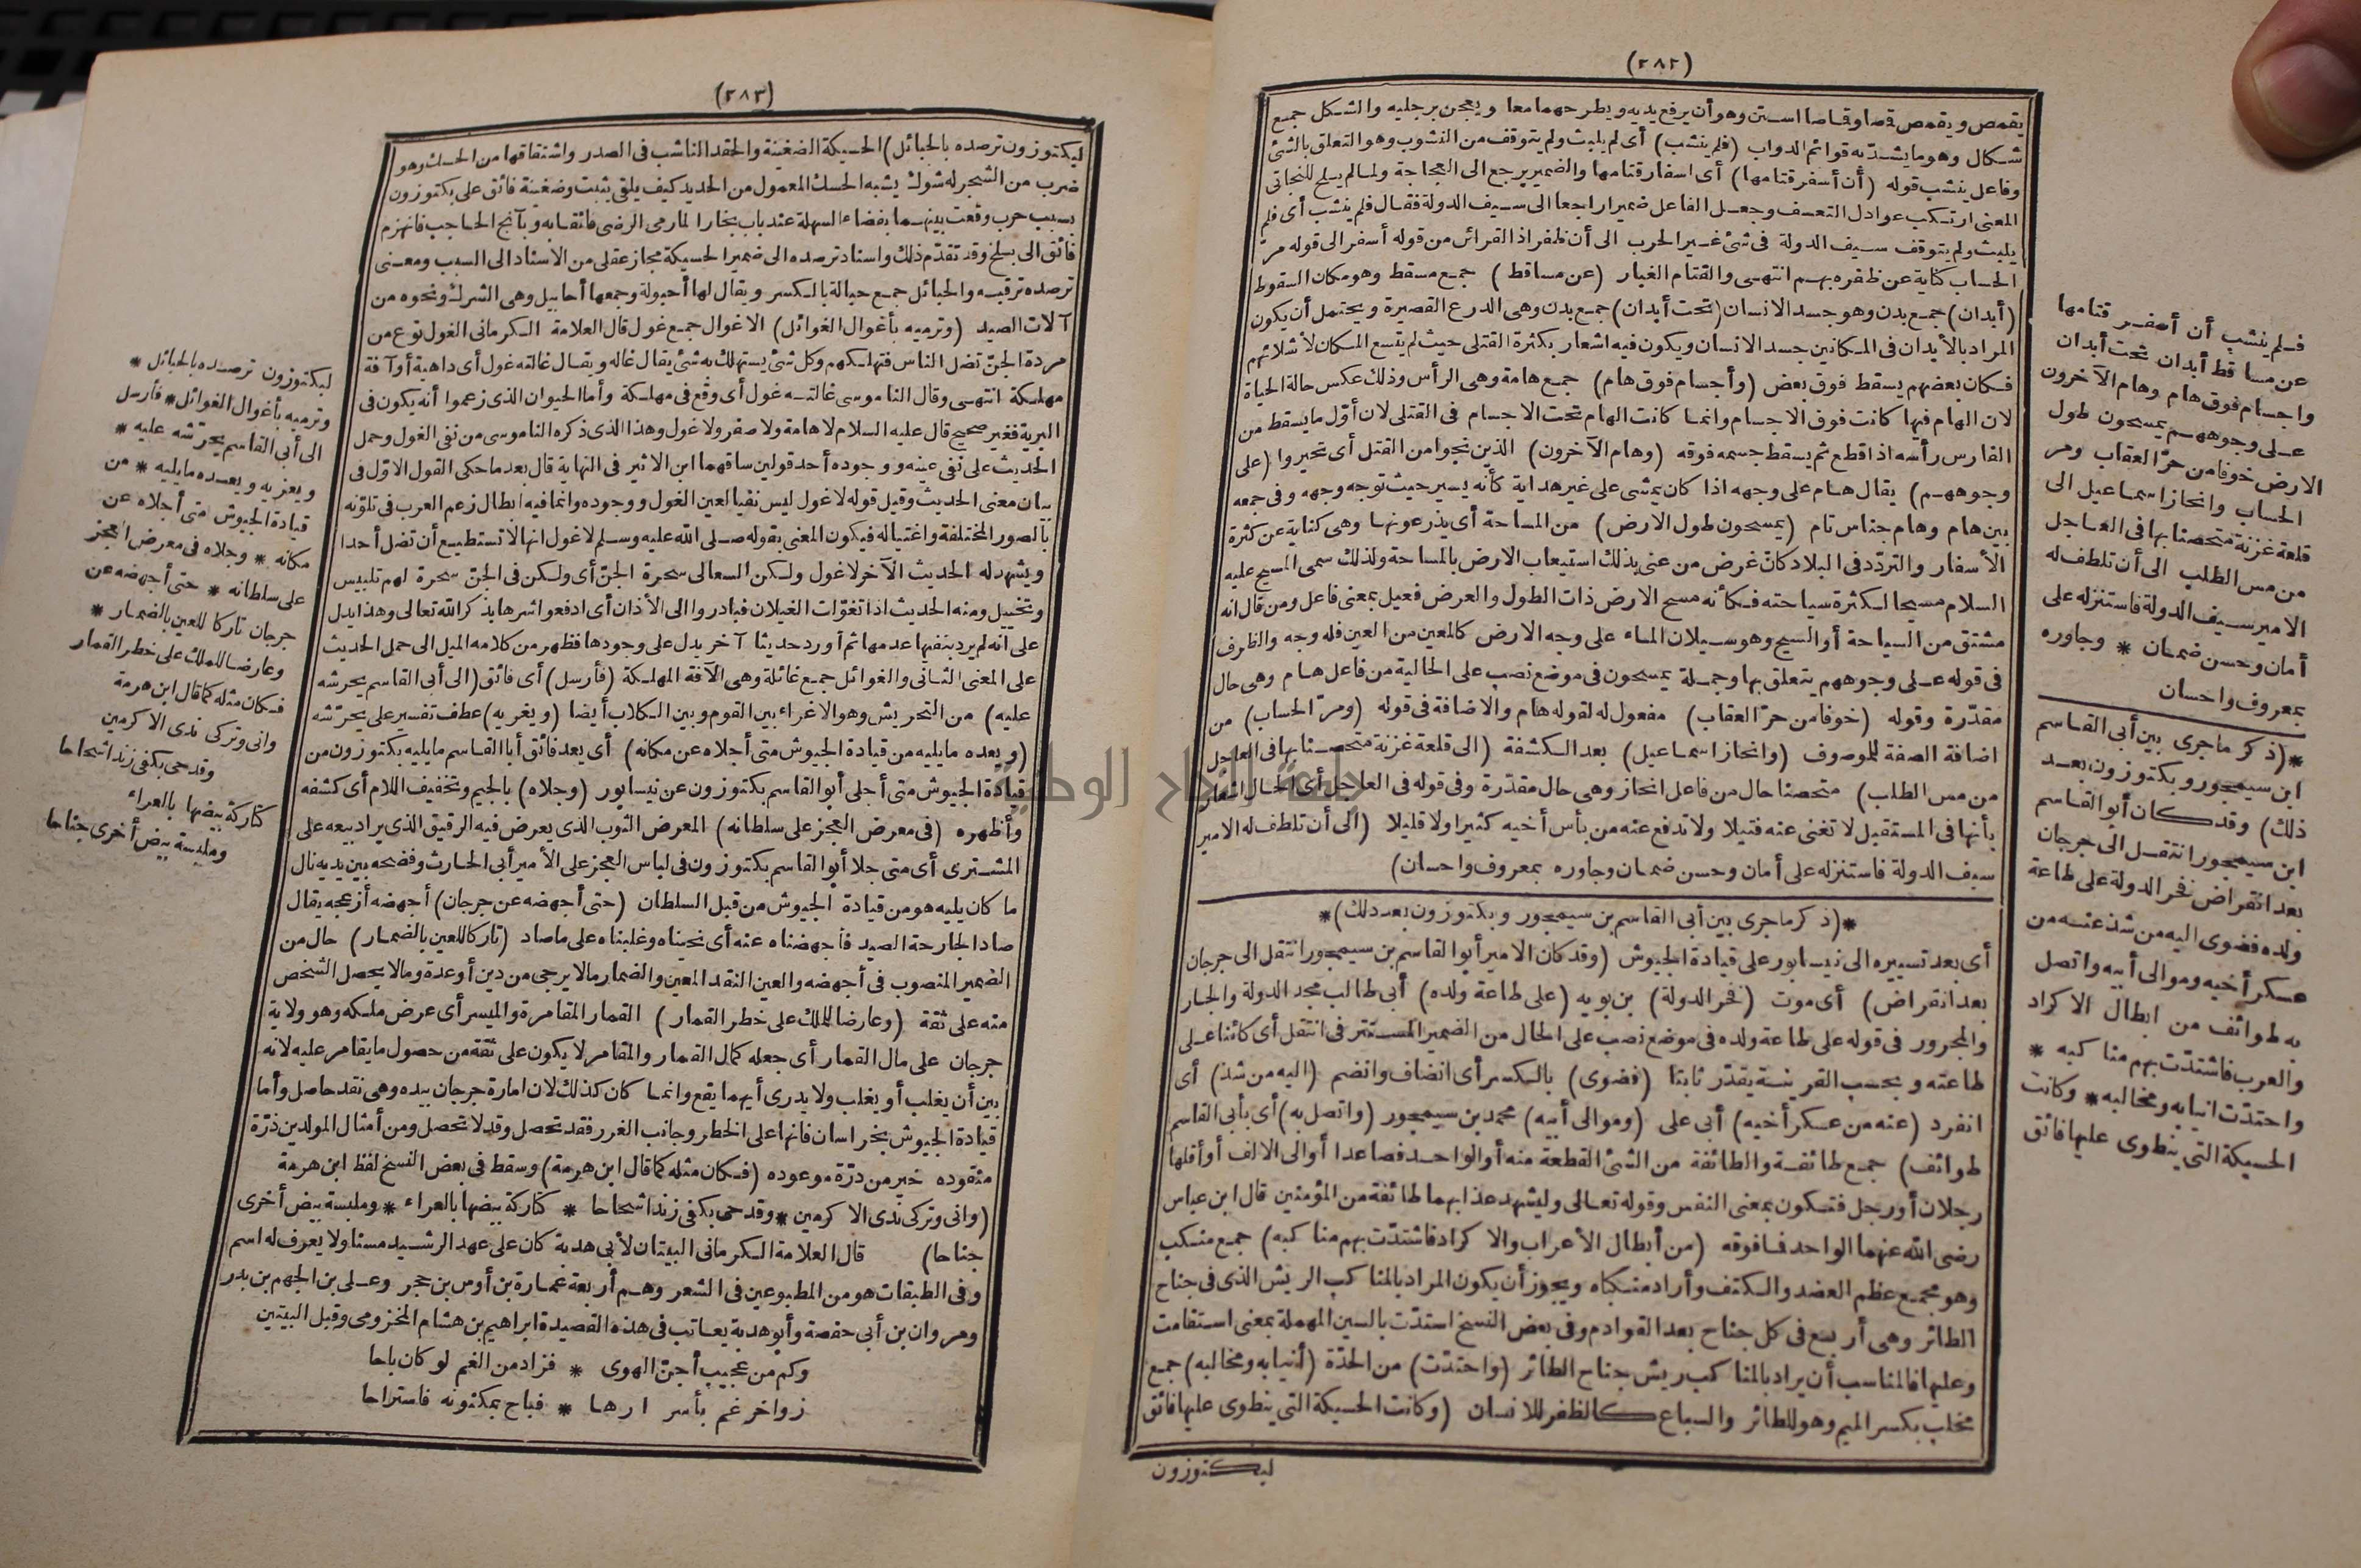 (٢٨٢)
يقمص ويقمص قصا وقماصا استن وهو أن يرفع يديه ويطرحهما معا ويعجن برجليه والشكل جمع
شكال وهو ما يشدّ به قوائم الدواب (فلم ينشب) أى لم يلبث ولم يتوقف من النشوب وهو التعلق بالشئ
وفاعل ينشب قوله (أن أسفر قتامها) أى اسفار قتامها والضمير يرجع الى العجاجة ولما لم يسلح للنجاتى
المعنى ارتكب عوادل التعسف وجعل الفاعل ضميرا راجعا الى سيف الدولة فقال فلم ينشب أى فلم
يلبث ولم يتوقف سيف الدولة فى شئ غير الحرب الى أن ظفر اذ القرائن من قوله أسفر الى قوله مرّ
الحساب كناية عن ظفره بهم انتهى والقتام الغبار (عن مساقط) جمع مسقط وهو مكان السقوط
(أبدان) جمع بدن وهو جسد الانسان (تحت أبدان) جمع بدن وهى الدرع القصيرة ويحتمل أن يكون
المراد بالأبدان فى المكانين جسد الانسان ويكون فيه اشعار بكثرة القتلى حيث لم يتسع المكان لأشلائهم
فكان بعضهم يسقط فوق بعض (وأجسام فوق هام) جمع هامة وهى الرأس وذلك عكس حالة الحياة
لان الهام فيها كانت فوق الاجسام وانما كانت الهام تحت الاجسام فى القتلى لان أوّل ما يسقط من
الفارس رأسه اذا قطع ثم يسقط جسمه فوقه (وهام الآخرون) الذين نجوا من القتل أى تحيروا (على
وجوههم) يقال هام على وجهه اذا كان يمشى على غير هداية كأنه يسير حيث توجه وجهه وفى جمعه
بين هام وهام جناس تام (يمسحون طول الارض) من المساحة أى يذرعونها وهى كناية عن كثرة
الأسفار والتردّد فى البلاد كان غرض من عنى بذلك استيعاب الارض بالمساحة ولذلك سمى المسيح عليه
السلام مسيحا لكثرة سياحته فكأنه مسح الارض ذات الطول والعرض فعيل بمعنى فاعل ومن قال انه
مشتق من السياحة أو السيح وهو سيلان الماء على وجه الارض كالمعين من العين فله وجه والظرف
فى قوله على وجوههم يتعلق بها وجملة يمسحون فى موضع نصب على الحالية من فاعل هام وهى حال
مقدّرة وقوله (خوفا من حرّ العقاب) مفعول له لقوله هام والاضافة فى قوله (ومرّ الحساب) من
اضافة الصفة للموصوف (وانحاز اسماعيل) بعد الكشفة (الى قلعة غزنة متحصنا بها فى العاجل
من مس الطلب) متحصنا حال من فاعل انحاز وهى حال مقدّرة وفى قوله فى العاجل أى الحال اشعار
بأنها فى المستقبل لا تغنى عنه فتيلا ولا تدفع عنه من بأس أخيه كثيرا ولا قليلا (الى أن تلطف له الامير
سيف الدولة فاستنزله على أمان وحسن ضمان وجاوره بمعروف واحسان)
*(ذكر ما جرى بين أبى القاسم بن سيمجور وبكتوزون بعد ذلك)*
أى بعد تسييره الى نيسابور على قيادة الجيوش (وقد كان الامير أبو القاسم بن سيمجور انتقل الى جرجان
بعد انقراض) أى موت (فخر الدولة) بن بويه (على طاعة ولده) أبى طالب مجد الدولة والجار
والمجرور فى قوله على طاعة ولده فى موضع نصب على الحال من الضمير المستتر فى انتقل أى كائنا على
طاعته وبحسب القرينة يقدّر ثابتا (فضوى) بالكسر أى انضاف وانضم (اليه من شذ) أى
انفرد (عنه من عسكر أخيه) أبى على (وموالى أبيه) محمد بن سيمجور (واتصل به) أى بأبى القاسم
طوائف) جمع طائفة والطائفة من الشئ القطعة منه أو الواحد فصاعدا أو الى الالف أو أقلها
رجلان أو رجل فتكون بمعنى النفس وقوله تعالى وليشهد عذابهما طائفة من المؤمنين قال ابن عباس
رضى الله عنهما الواحد فما فوقه (من أبطال الأعراب والاكراد فاشتدّت بهم مناكبه) جمع منكب
وهو مجمع عظم العضد والكتف وأراد منكباه ويجوز أن يكون المراد بالمناكب الريش الذى فى جناح
الطائر وهى أربع فى كل جناح بعد القوادم وفى بعض النسخ استدّت بالسين المهملة بمعنى استقامت
وعليها فالمناسب أن يراد بالمناكب ريش جناح الطائر (واحتدّت) من الحدّة (أنيابه ومخالبه) جمع
مخلب بكسر الميم وهو للطائر والسباع كالظفر للانسان (وكانت الحسيكة التى ينطوى عليها فائق
ليكتوزون
فلم ينشب أن أسفر قتامها
عن مساقط أبدان تحت أبدان
واجسام فوق هام وهام الآخرون
على وجوههم يمسحون طول
الارض خوفا من حرّ العقاب ومر
الحساب وانحاز اسماعيل الى
قلعة غزنة متحصنا بها فى العاجل
من مس الطلب الى أن تلطف له
الامير سيف الدولة فاستنزله على
أمان وحسن ضمان * وجاوره
بمعروف واحسان
*(ذكر ما جرى بين أبى القاسم
ابن سيمجور وبكتوزون بعد
ذلك) وقد كان أبو القاسم
ابن سيمجور انتقل الى جرجان
بعد انقراض فخر الدولة على طاعة
ولده فضوى اليه من شذ عنه من
عسكر أخيه وموالى أبيه واتصل
به طوائف من ابطال الاكراد
والعرب فاشتدّت بهم مناكبه *
واحتدّت انيابه ومخالبه * وكانت
الحسيكة التى ينطوى عليها فائق
(٢٨٣)
ليكتوزون ترصده بالحبائل) الحسيكة الضغينة والحقد الناشب فى الصدر واشتقاقها من الحسك وهو
ضرب من الشجر له شوك يشبه الحسك المعمول من الحديد كيف يلقى يثبت وضغينة فائق على بكتوزون
بسبب حرب وقعت بينهما بفضاء السهلة عند باب بخارا لما رمى الرضى فائقا به وبآنج الحاجب فانهزم
فائق الى بلخ وقد تقدّم ذلك واسناد ترصده الى ضمير الحسيكة مجاز عقلى من الاسناد الى السبب ومعنى
ترصده ترقبه والحبائل جمع حبالة بالكسر ويقال لها أحبولة وجمعها أحابيل وهى الشرك ونحوه من
آلات الصيد (وترميه بأغوال الغوائل) الاغوال جمع غول قال العلامة الكرمانى الغول نوع من
مردة الجنّ تضل الناس فتهلكهم وكل شئ يستهلك به شئ يقال غاله ويقال غالته غول أى داهية أو آفة
مهلكة انتهى وقال الناموسى غالته غول أى وقع فى مهلكة وأما الحيوان الذى زعموا أنه يكون فى
البرية فغير صحيح قال عليه السلام لا هامة ولا صفر ولا غول وهذا الذى ذكره الناموسى من نفى الغول وحمل
الحديث على نفى عينه ووجوده أحد قولين ساقهما ابن الاثير فى النهاية قال بعد ما حكى القول الاوّل فى
بيان معنى الحديث وقيل قوله لا غول ليس نفيا لعين الغول ووجوده وانما فيه ابطال زعم العرب فى تلوّنه
بالصور المختلفة واغتياله فيكون المعنى بقوله صلى الله عليه وسلم لا غول انها لا تستطيع أن تضل أحدا
ويشهد له الحديث الآخر لا غول ولكن السعالى سحرة الجنّ أى ولكن فى الجنّ سحرة لهم تلبيس
وتخييل ومنه الحديث اذا تغوّلت الغيلان فبادروا الى الأذان أى ادفعوا شرها بذكر الله تعالى وهذا يدل
على أنه لم يرد بنفيها عدمها ثم أورد حديثا آخر يدل على وجودها فظهر من كلامه الميل الى حمل الحديث
على المعنى الثانى والغوائل جمع غائلة وهى الآفة المهلكة (فأرسل) أى فائق (الى أبى القاسم يحرشه
عليه) من التحريش وهو الاغراء بين القوم وبين الكلاب أيضا (ويغريه) عطف تفسير على يحرّشه
(ويعده ما يليه من قيادة الجيوش متى أجلاه عن مكانه) أى يعد فائق أبا القاسم ما يليه بكتوزون من
قيادة الجيوش متى أجلى أبو القاسم بكتوزون عن نيسابور (وجلاه) بالجيم وتخفيف اللام أى كشفه
وأظهره (فى معرض العجز على سلطانه) المعرض الثوب الذى يعرض فيه الرقيق الذى يراد بيعه على
المشترى أى متى جلا أبو القاسم بكتوزون فى لباس العجز على الأمير أبى الحارث وفضحه بين يديه نال
ما كان يليه هو من قيادة الجيوش من قبل السلطان (حتى أجهضه عن جرجان) أجهضه أزعجه يقال
صاد الجارحة الصيد فأجهضناه عنه أى نحيناه وغلبناه على ما صاد (تاركا للعين بالضمار) حال من
الضمير المنصوب فى أجهضه والعين النقد المعين والضمار ما لا يرجى من دين أو عدة وما لا يحصل الشخص
منه على ثقة (وعارضا للملك على خطر القمار) القمار المقامرة والميسر أى عرض ملكه وهو ولاية
جرجان على مال القمار أى جعله كمال القمار والمقامر لا يكون على ثقة من حصول ما يقامر عليه لانه
بين أن يغلب أو يغلب ولا يدرى أيهما يقع وانما كان كذلك لان امارة جرجان بيده وهى نقد حاصل وأما
قيادة الجيوش بخراسان فانها على الخطر وجانب الغرر فقد تحصل وقد لا تحصل ومن أمثال المولدين ذرّة
منقوده خير من درّة موعوده (فكان مثله كما قال ابن هرمة) وسقط فى بعض النسخ لفظ ابن هرمة
(وانى وتركى ندى الاكرمين * وقدحى بكفى زندا شحاحا * كتاركة بيضها بالعراء * وملبسة بيض أخرى
جناحا) قال العلامة الكرمانى البيتان لأبى هدبة كان على عهد الرشيد مسنا ولا يعرف له اسم
وفى الطبقات هو من المطبوعين فى الشعر وهم أربعة عمارة بن أوس بن حجر وعلى بن الجهم بن بدر
ومروان بن أبى حفصة وأبو هدبة يعاتب فى هذه القصيدة ابراهيم بن هشام المخزومى وقبل البيتين
وكم من عجيب أجنّ الهوى * فزاد من الغم لو كان باحا
زواخر غم بأسرارها * فباح بمكنونه فاستراحا
ليكتوزون ترصده بالحبائل *
وترميه بأغوال الغوائل * فأرسل
الى أبى القاسم يحرّشه عليه *
ويغريه ويعده ما يليه * من
قيادة الجيوش متى أجلاه عن
مكانه * وجلاه فى معرض العجز
على سلطانه * حتى أجهضه عن
جرجان تاركا للعين بالضمار *
وعارضا للملك على خطر القمار
فكان مثله كما قال ابن هرمة
وانى وتركى ندى الاكرمين
وقدحى بكفى زندا شحاحا
كتاركة بيضها بالعراء
وملبسة بيض أخرى جناحا